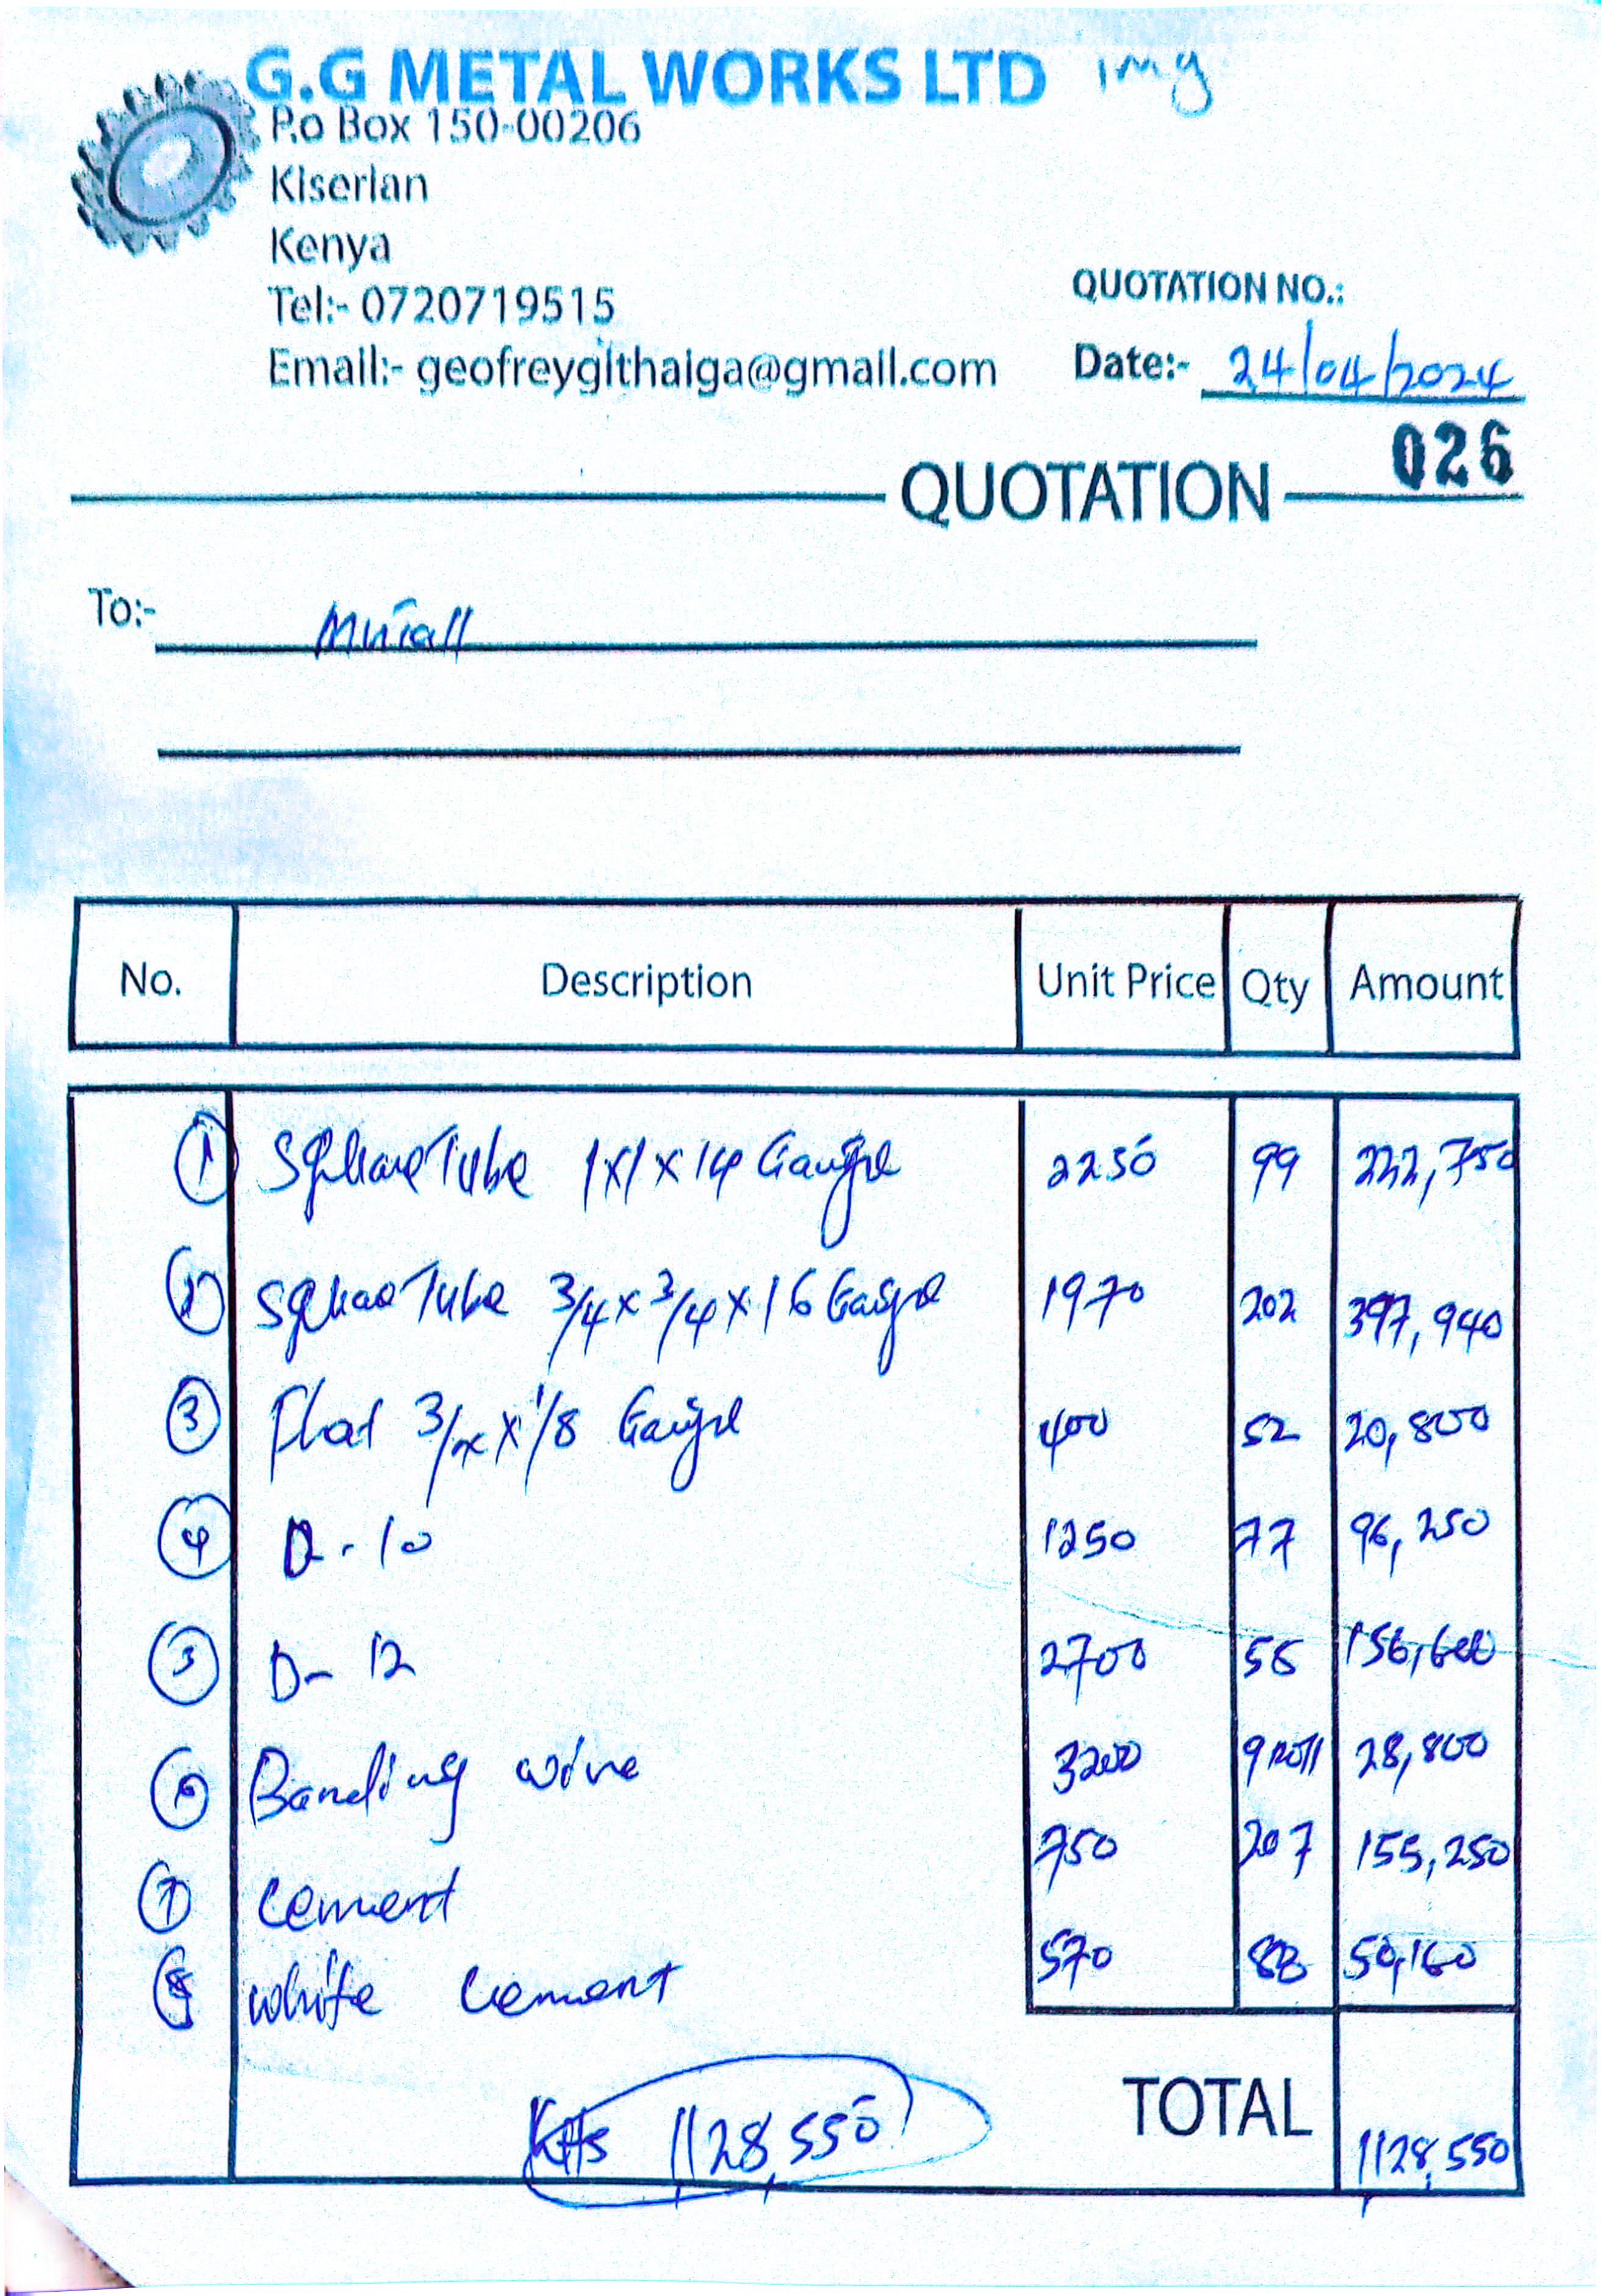 G.G METAL WORKS LTD img
P.o Box 150-00206
Kiserian
Kenya
Tel:- 0720719515
Email:- geofreygithaiga@gmail.com
QUOTATION NO.:
Date:- 24/04/2024
026
QUOTATION
To:-
No. Description Unit Price Qty Amount
1 Square Tube 1x1x14 Gauge 2250 99 222,750
2 Square Tube 3/4x3/4x16 Gauge 1970 202 397,940
3 Flat x1/8 Gauge 400 52 20,800
4 D-10 1250 77 96,250
5 D-12 2700 58 156,600
6 Banding wire 3200 9 roll 28,800
7 Cement 750 207 155,250
8 white cement 570 88 50,160
TOTAL
KHs 1128,550
1128,550